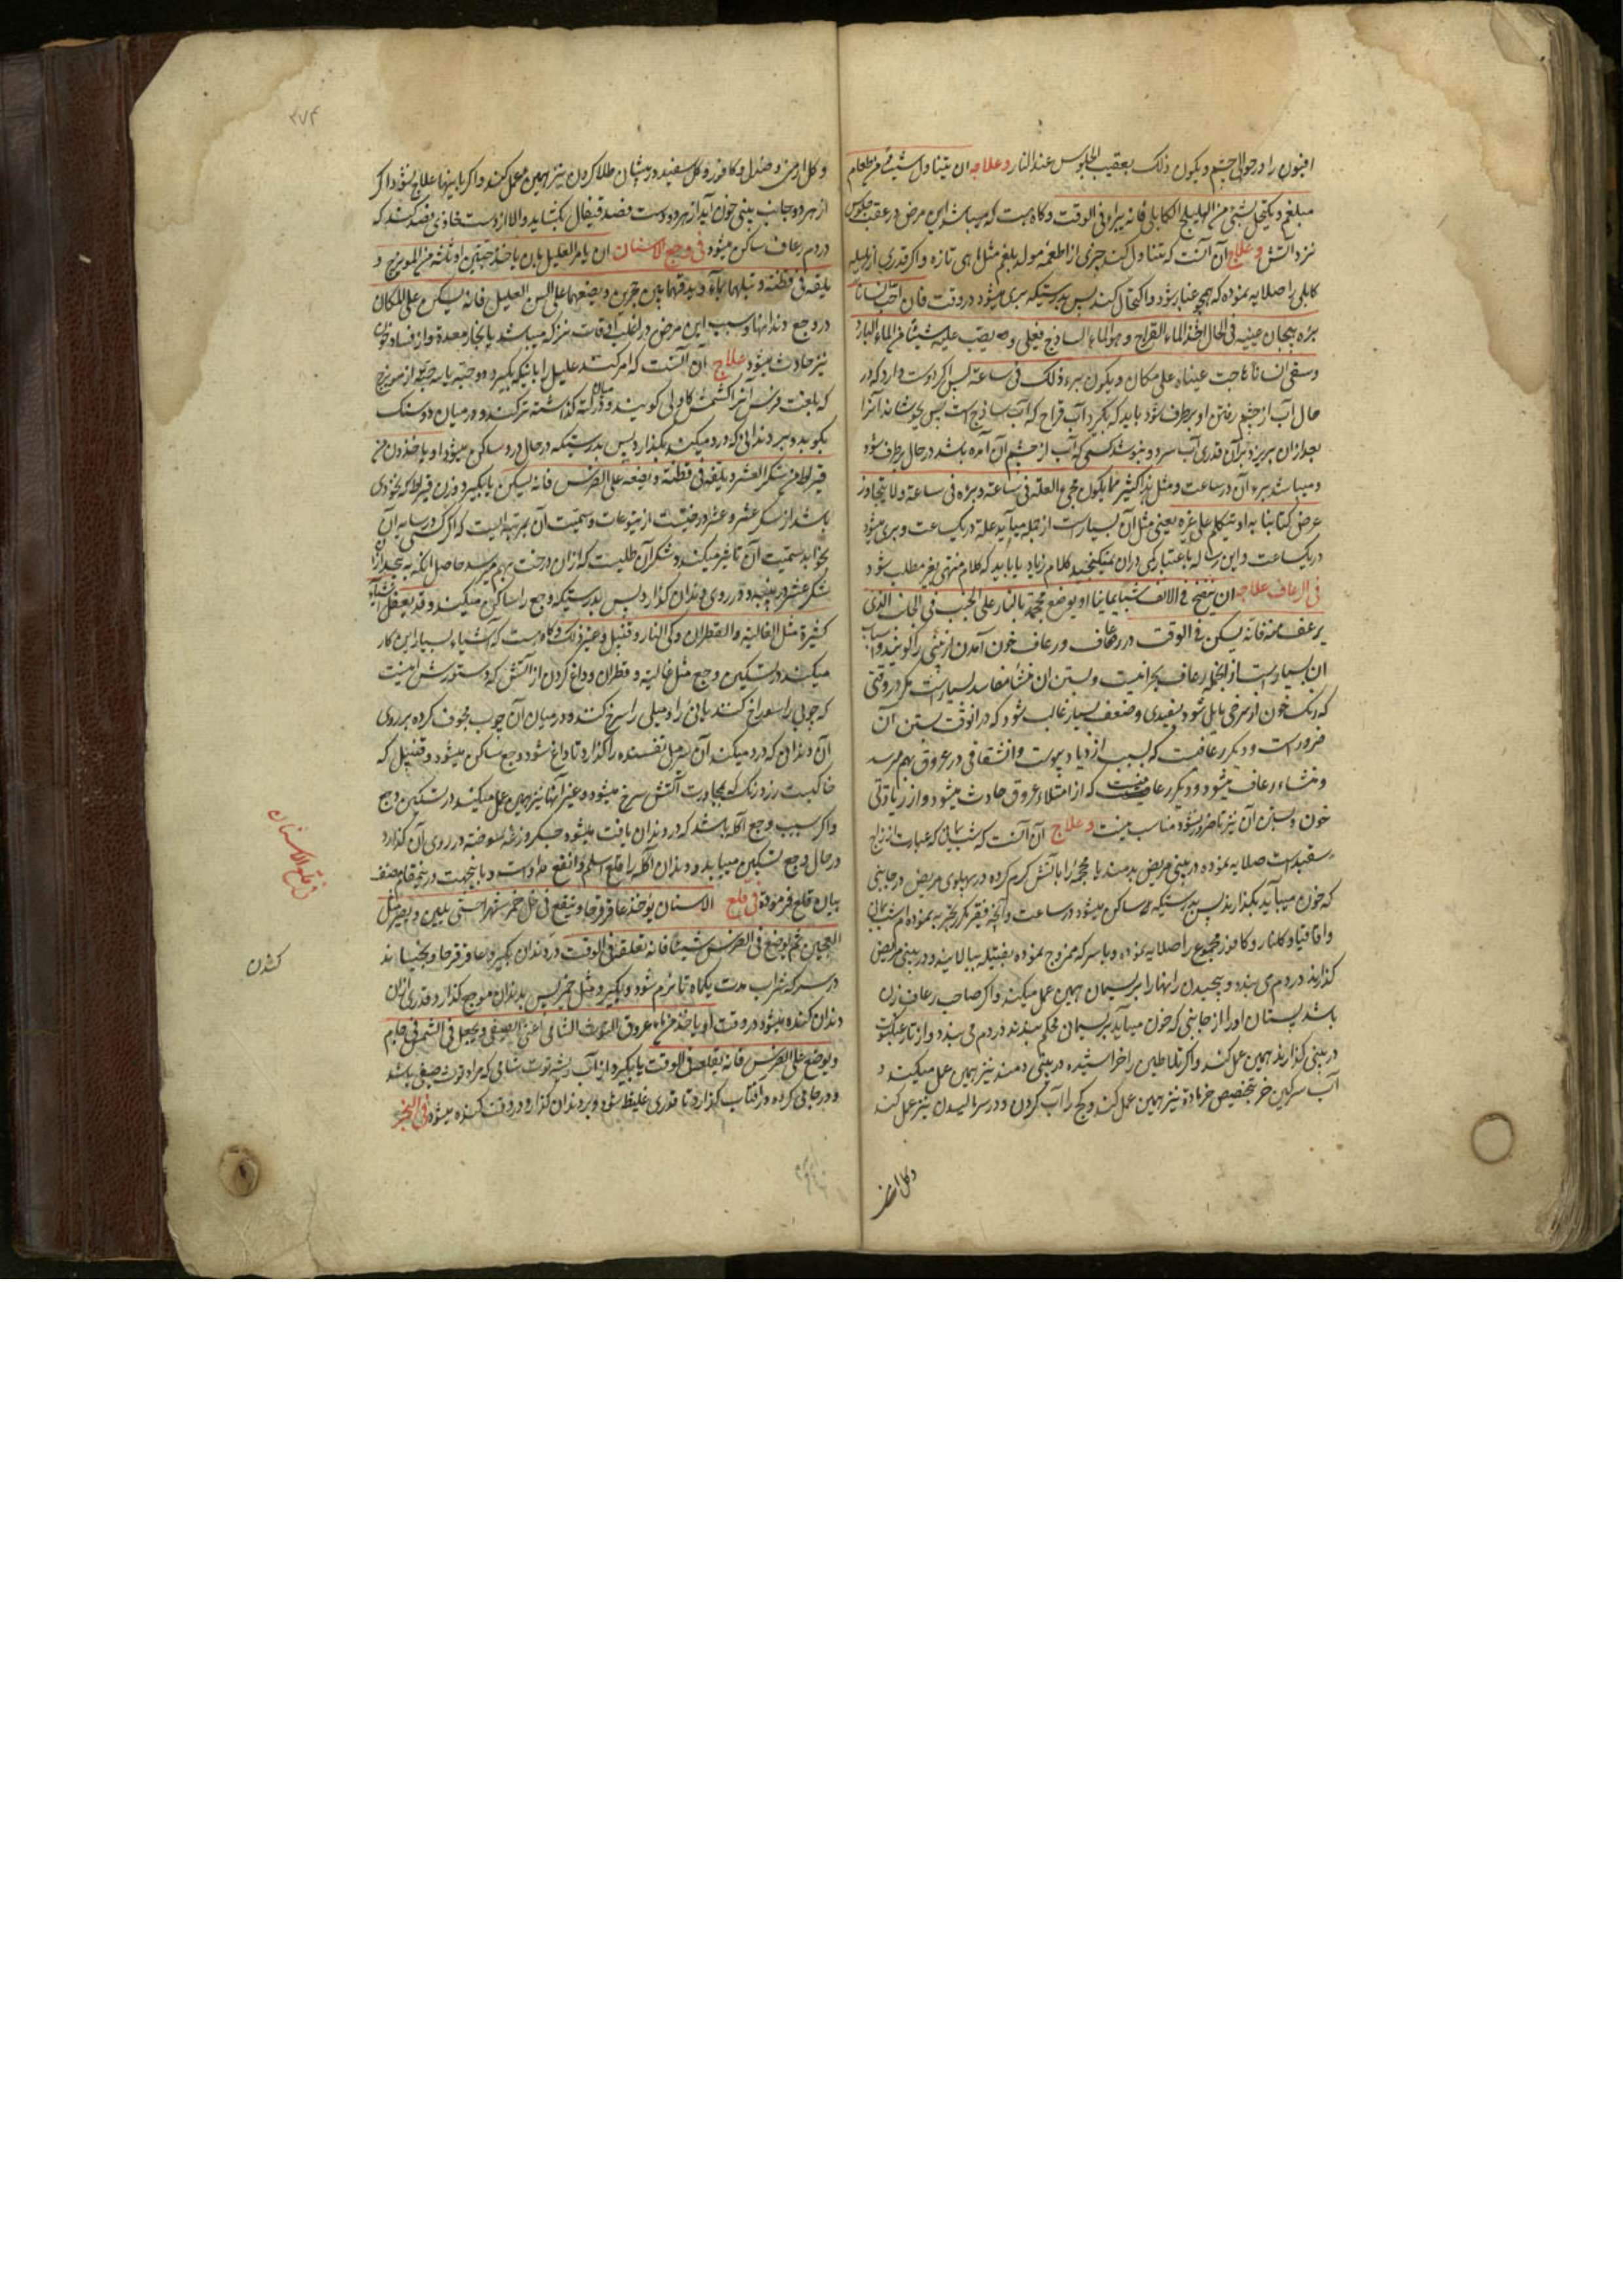 افیون را در حوالی چشم ویکون ذلک بعقیب الجلوس عند النار وعلاجه ان یتناول شیئا من طعام
مبلغم ویکتحل بشئ من الهلیلج الکابلی فانه یبراء فی الوقت وکاه هست که میباشد این مرض در عقب جلوس
نزد آتش وعلاج آن آنست که تناول کند چیزی از اطعمه مولد بلغم مثل ماهی تازه واکر قدری از هلیله
کابلی را صلایه نموده که همچو غبار شود واکتحال کند پس بدرستیکه بری میشود در وقت فان احب انسانا
برؤه هیجان عینیه فی الحال اخذ الماء القراح وهو الماء الساذج فیغلی ویصب علیه شیئا من الماء البارد
وسقی انسانا هاجت عیناه علی مکان ویکون برء ذلک فی ساعة پس اکر دوست دارد که در
حال آب از چشم رفتن او برطرف شود باید که بکیرد آب قراح که آب ساذج است پس بجوشاند آنرا
بعد ازان بریزد بر آن قدری آب سرد و بنوشد کسی که آب از چشم آن آمده باشد در حال برطرف شود
ومیباشد برء آن در ساعت ومثل هذا کثیر مما یکون مجئ العلة فی ساعة وبرؤه فی ساعة ولا یتجاوز
عرض کتابنا به او یتکلم علی غیره یعنی مثل آن بسیار است از جمله میآید علة در یکساعت وبری میشود
در یکساعت واین رساله باعتباری دران نمیکنجید کلام زیاد یا باید که کلام منتهی بغیر مطلب شود
فی الرعاف علاجه ان ینفخ فی الانف شبا یمانیا او یوضع محجمة بالنار علی الجنب فی الجانب الذی
یرعف منه فانه یسکن فی الوقت در رعاف ورعاف خون آمدن از بینی را کویند واسباب
ان بسیار است از انجمله رعاف بحرانیست وبستن ان منشأ مفاسد بسیار است مکر در وقتی
که رنک خون از سرخی مایل شود بسفیدی وضعف بسیار غالب شود که در انوقت بستن آن
ضرور است ودیکر رعافیست که بسبب ازدیاد یبوست وانشقاقی در عروق بهم میرسد
ومنشاء رعاف میشود ودیکر رعافیست که از امتلاء عروق حادث میشود واز زیادتی
خون وبستن آن نیز تا ضرور نشود مناسب نیست وعلاج آن آنست که شب یمانی که عبارت از زاج
سفید است صلایه نموده در بینی مریض بدمند یا محجمه را با آتش کرم کرده در پهلوی مریض در جانبی
که خون میآید بکذارند پس بدرستیکه ساکن میشود در ساعت وآنچه فقیر مکرر تجربه نموده ام شب یمانی
واقاقیا وکلنار وکافور مجموع را صلایه نموده وبا سرکه ممزوج نموده بفتیله بیالایند ودر بینی مریض
کذارند در دم می بندد وپیچیدن رانها را بریسمان همین عمل میکند واکر صاحب رعاف زن
باشد پستان او را از جانبی که خون میآید بریسمان محکم ببندند در دم می بندد واز تار عنکبوت
در بینی کذارند همین عمل کند واکر خراطین را خراشیده در بینی دمند نیز همین عمل میکند و
آب سرکین خر بتخصیص خر ماده نیز همین عمل کند وکچ را آب کردن ودر سر مالیدن نیز عمل کند
وکل ارمنی
۳۷۴
وکل ارمنی وصندل وکافور وکل سفید در پیشانی طلا کردن نیز همین عمل کند واکر باینها علاج نشود اکر
از هر دو جانب بینی خون آید از هر دو دست فصد قیفال بکشاید والا از دست محاذی فصد کنند که
در دم رعاف ساکن میشود فی وجع الاسنان ان یامر العلیل بان یاخذ حبتین او ثلثه من المویزج و
یلقه فی قطنة ویبلهما بماء ویدقهما بین حجرین ویضعهما علی السن العلیل فانه یسکن علی المکان
در وجع دندانها وسبب این مرض در اغلب اوقات نزله میباشد یا بخار معده واز فساد خون
نیز حادث میشود علاج آن آنست که امر کنند علیل را باینکه بکیرد دو حبه یا سه حبه از مویزج
که بلغت فرس آنرا کشمش کاولی کویند ودر میان پنبه کذاشته تر کنند ودر میان دو سنک
بکوبد وبر دندانی که درد میکند بکذارد پس بدرستیکه در حال درد ساکن میشود او یاخذ وزن
قیراط من سکر العشر ویلقه فی قطنة ویضعه علی الضرس فانه یسکن یا بکیرد وزن قیراط که نخودی
باشد از سکر عشر وعشر درختیست از یتوعات وسمیت آن بمرتبه ایست که اکر کسی در سایه آن
بخوابد سمیت آن تاثیر میکند وسکر آن طلیست که ازان درخت بهم میرسد حاصل انکه بقدری از
سکر عشر در پنبه ودر روی دندان کذارد پس بدرستیکه وجع را ساکن میکند وقد یفعل اشیاء
کثیرة مثل الغالیة والقطران وکی النار وقنبیل وغیر ذلک وکاه هست که اشیاء بسیار این کار
میکند در تسکین وجع مثل غالیه وقطران وداغ کردن از آتش که دستورش اینست
که چوبی را سوراخ کنند یا نی را ومیلی را سرخ کنند ودر میان آن چوب مجوف کرده بر روی
آن دندان که درد میکند آن سر میل تفسیده را کذارد تا داغ شود ووجع ساکن میشود وقنبیل که
خاکیست زرد رنک که بمجاورت آتش سرخ میشود وغیر آنها نیز همین عمل میکند در تسکین وجع
واکر سبب وجع آکله باشد که در دندان یافت میشود جکر وزغه سوخته در روی آن کذارد
در حال وجع تسکین مییابد ودندان آکله را قلع اسلم وانفع طرق است وباینجهت درینمقام مصنف
بیان قلع فرموده فی قلع الاسنان یؤخذ عاقرقرحا وینقع فی خل خمر شهرا حتی یلین ویصیر مثل
العجین ثم یوضع فی الضرس شیئا فانه تقلعه فی الوقت در دندان بکیرد عاقرقرحا وبخیساند
در سرکه شراب مدت یکماه تا نرم شود وبکیرد مثل خمیر پس بدندان موجع کذارد وقدری ازان
دندان کنده میشود در وقت او یاخذ من ماء عروق التوت الشامی اعنی الصیفی ویجعل فی الشمس فی جام
ویوضع علی الضرس فانه یقلعه فی الوقت یا بکیرد از آب ریشه توت شامی که مراد توت صیفی باشد
ودر جامی کرده در آفتاب کذارد تا قدری غلیظ شود وبر دندان کذارد در وقت کنده میشود فی البخر
فی قلع الاسنان
کندن